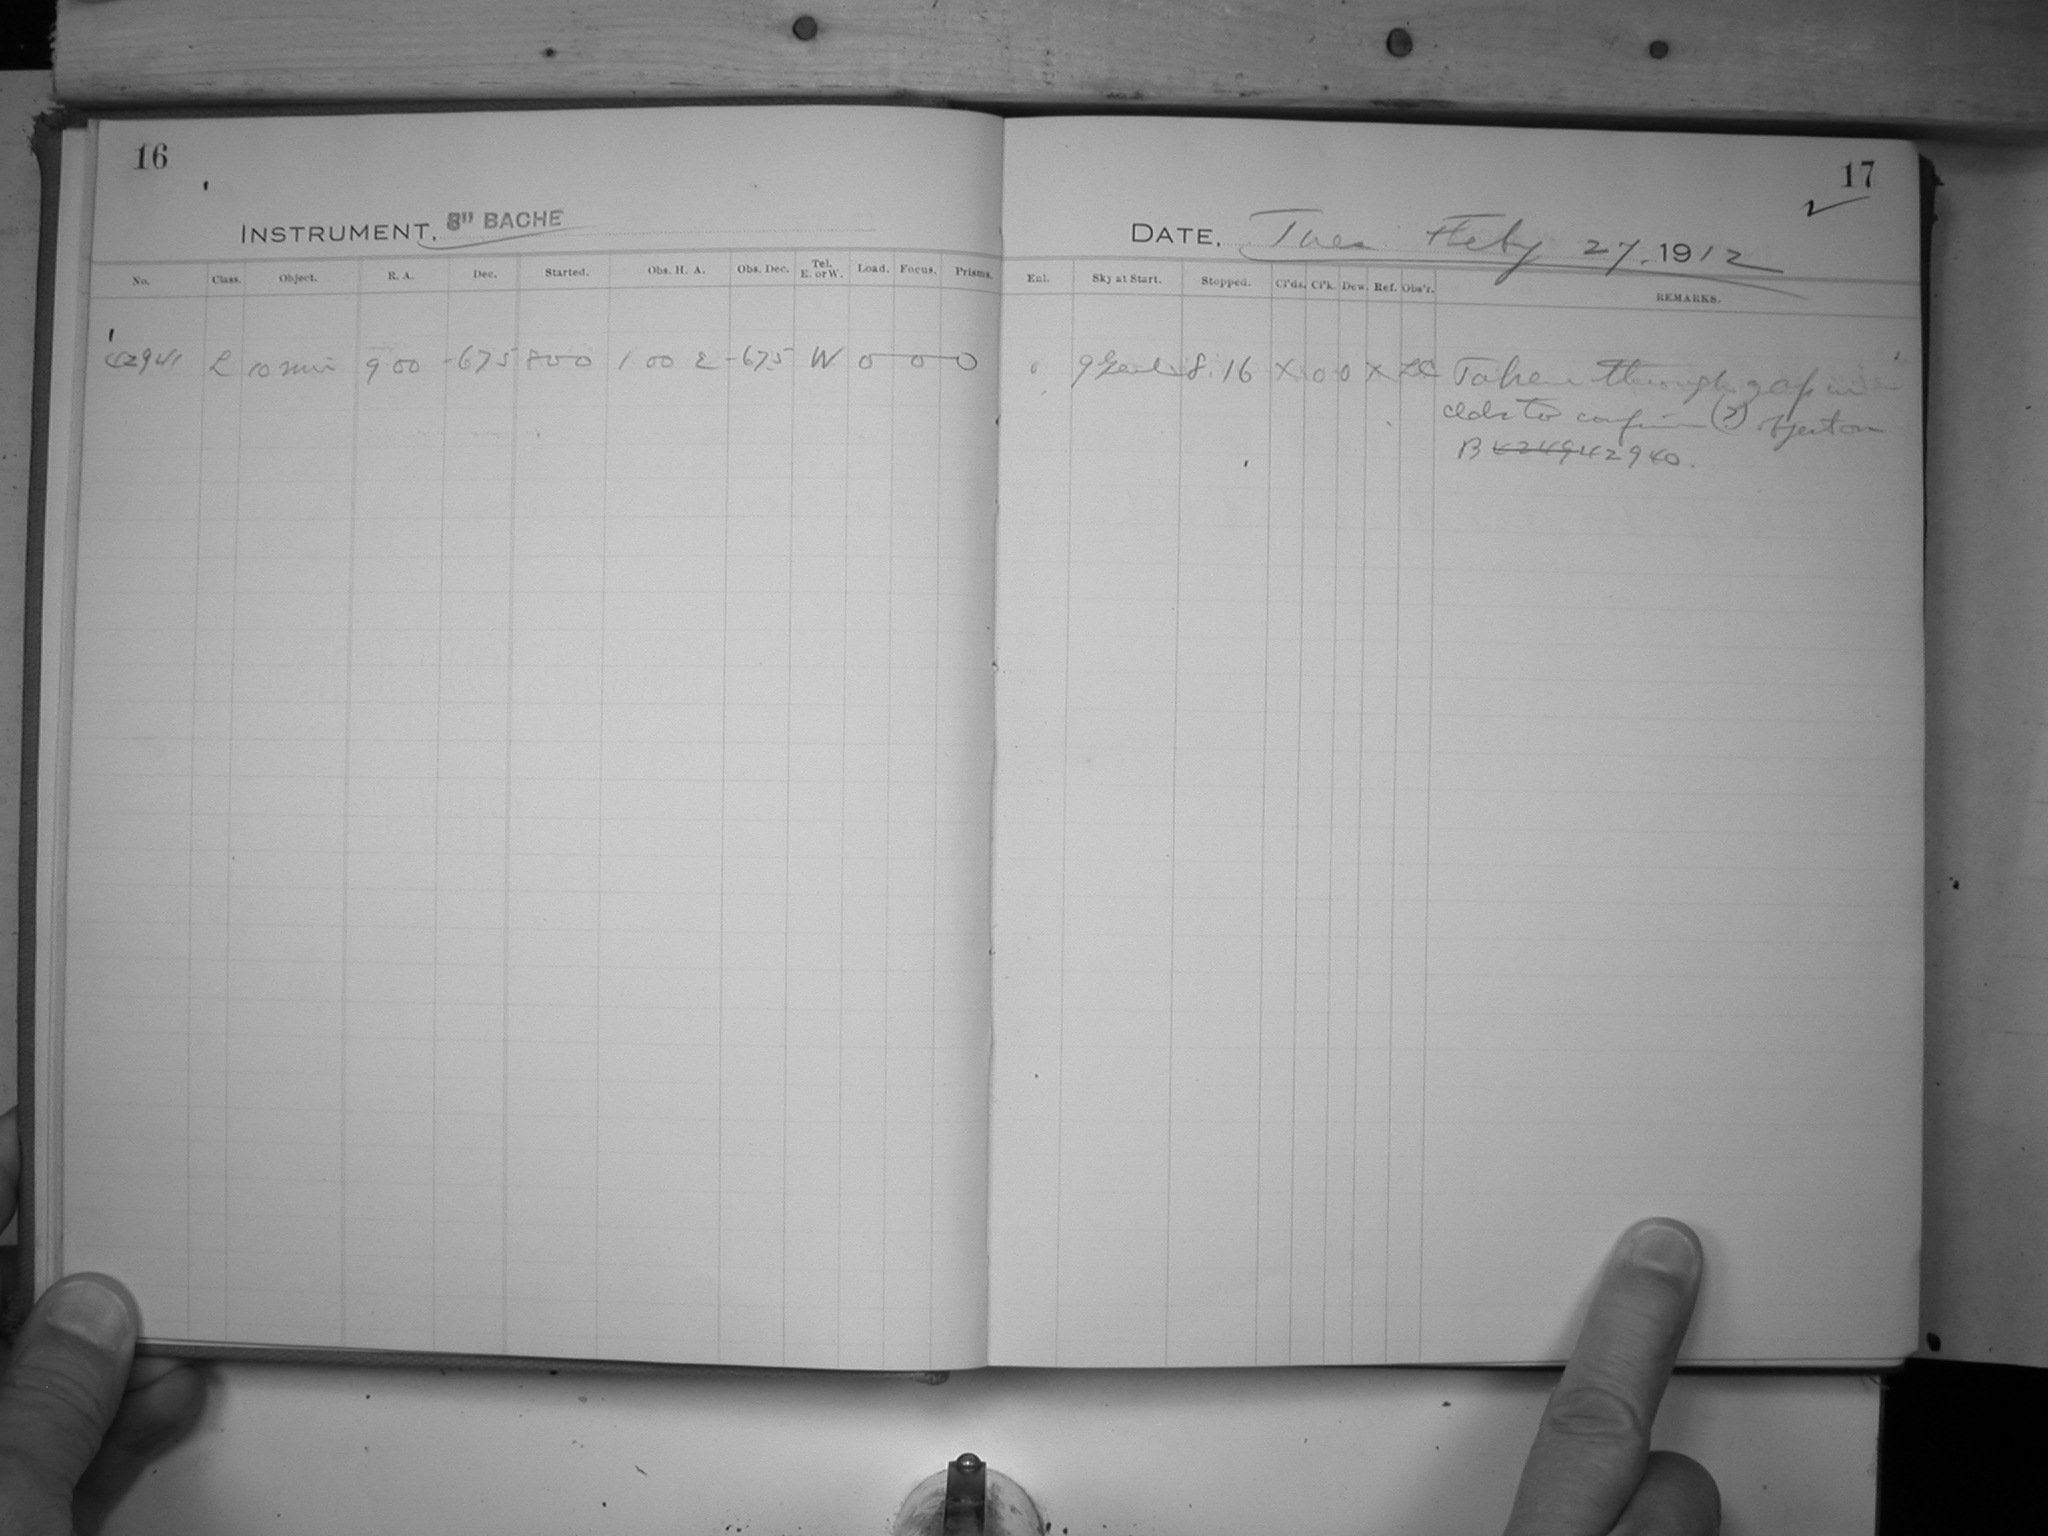 16
17
INSTRUMENT, 8" BACHE
DATE, Tues. Feby 27, 1912
No. Class. Object. R. A. Dec. Started. Obs. H. A. Obs. Dec. Tel. E. or W. Load. Focus. Prisms. Enl. Sky at Start. Stopped. Cl'ds. Cl'k. Dew. Ref. Obs'r. REMARKS.
42941 L 10 min 9 00 -67.5 8 00 1 00 E -67.5 W 0 0 0 0 8.16 X 0 0 X Taken through gap in
clds to confirm (?) object on
B 4249 42940.